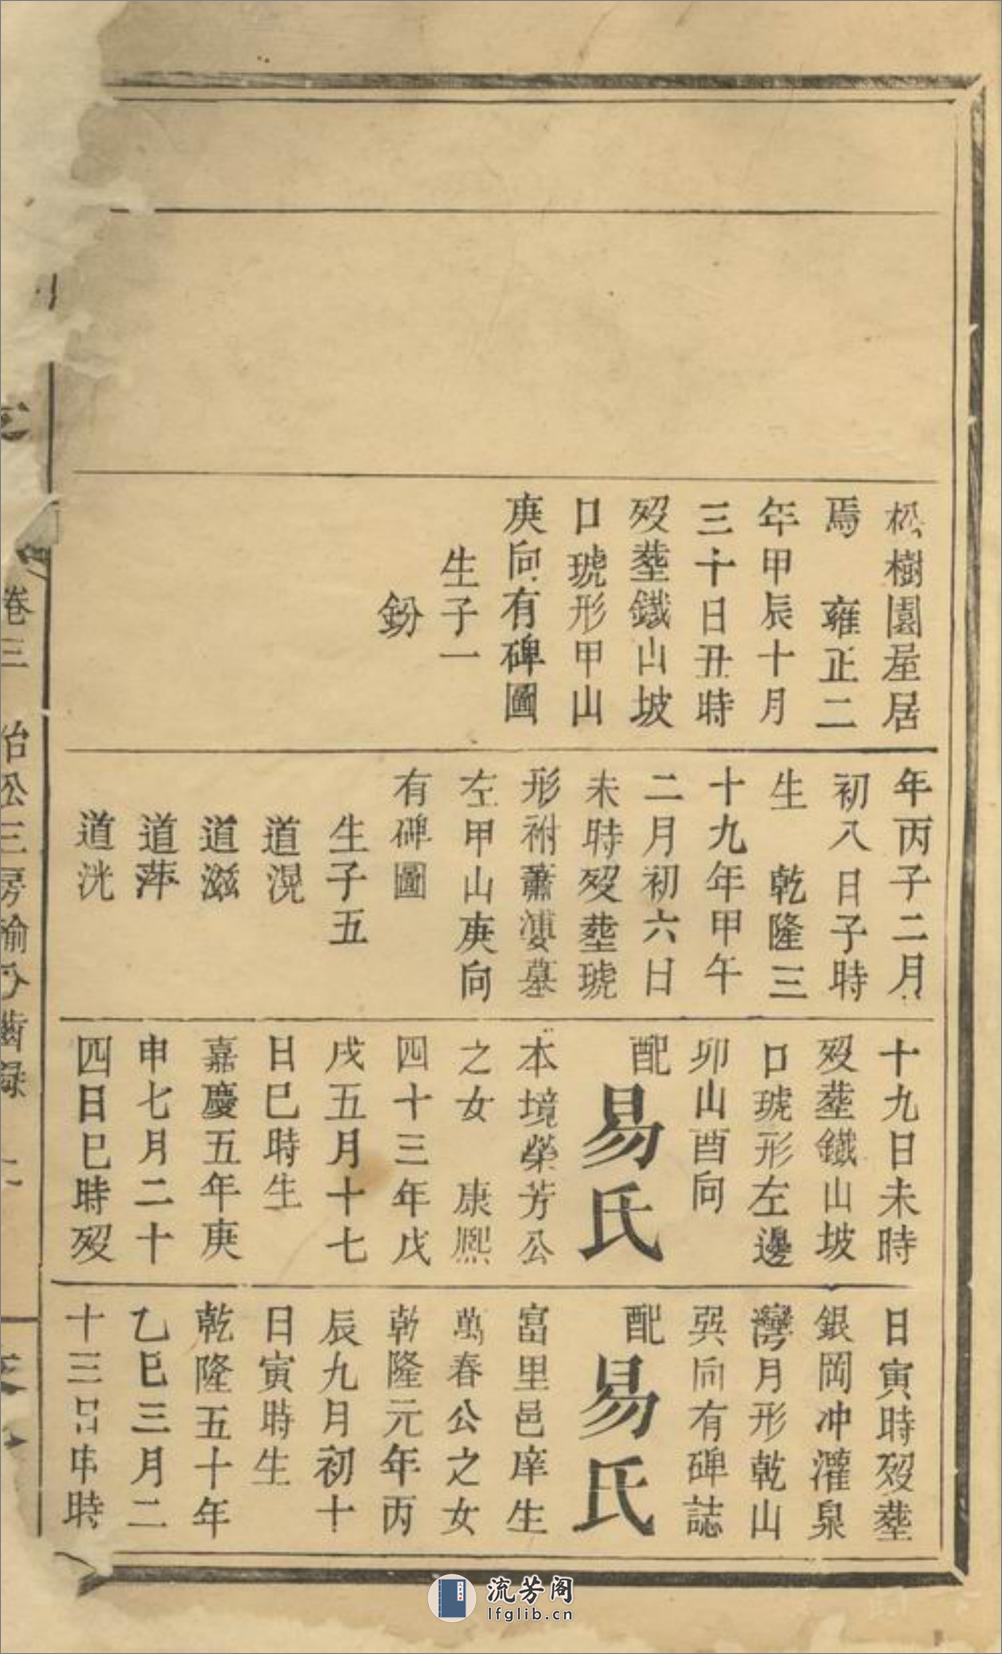 松樹園屋居
焉　雍正二
年甲辰十月
三十日丑時
歿塟鐵山坡
口琥形甲山
庚向有碑圖
生子一
鈖
年丙子二月
初八日子時
生　乾隆三
十九年甲午
二月初六日
未時歿塟琥
形祔蕭淒墓
左甲山庚向
有碑圖
生子五
道滉
道滋
道萍
道洸
十九日未時
歿塟鐵山坡
口琥形左邊
卯山酉向
配易氏
本境榮芳公
之女　康熙
四十三年戊
戌五月十七
日巳時生
嘉慶五年庚
申七月二十
四日巳時歿
日寅時歿塟
銀岡冲灌泉
灣月形乾山
巽向有碑誌
配易氏
富里邑庠生
萬春公之女
乾隆元年丙
辰九月初十
日寅時生
乾隆五十年
乙巳三月二
十三日申時
卷三　治松三房諭分齒錄
流芳阁
lfglib.cn